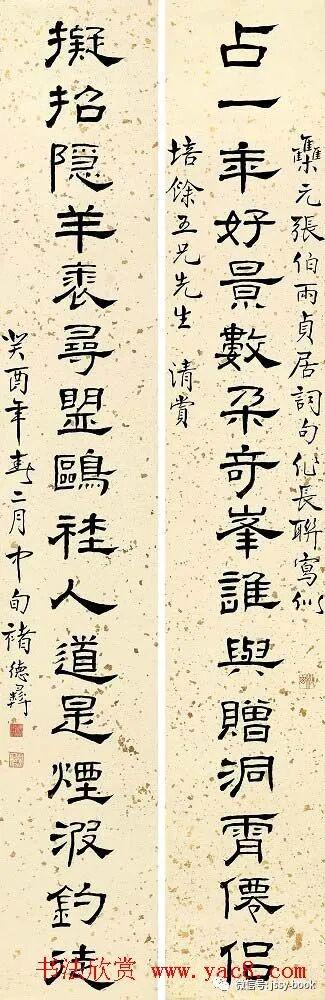 雧元張伯雨貞居詞句作長聯寫似
占一年好景數朵奇峯誰與贈洞霄僊侶
培餘五兄先生 清賞
擬招隱羊裘尋盟鷗社人道是煙波釣徒
癸酉年春二月中旬褚德彝
书法欣赏 www.yac8.com
微信号: jssy-book